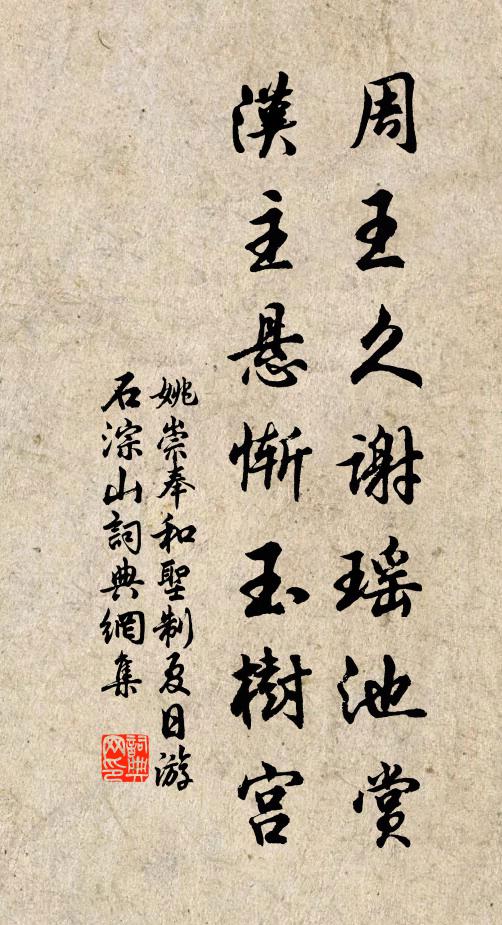 周王久谢瑶池赏
漢主悬惭玉樹宫
姚崇奉和聖制夏日游
石淙山詞典網集
詞典
网印